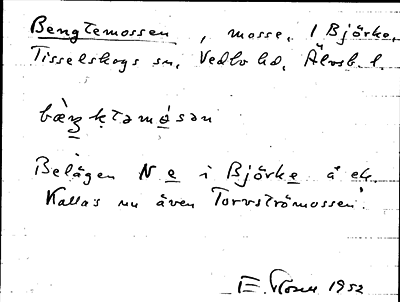 Bengtemossen, mosse, 1 Björke,
Tisselskogs sn, Vedbo hd, Älvsb. l.
Belägen N e i Björke å ek.
Kallas nu även Torvströmossen.
E. 1952